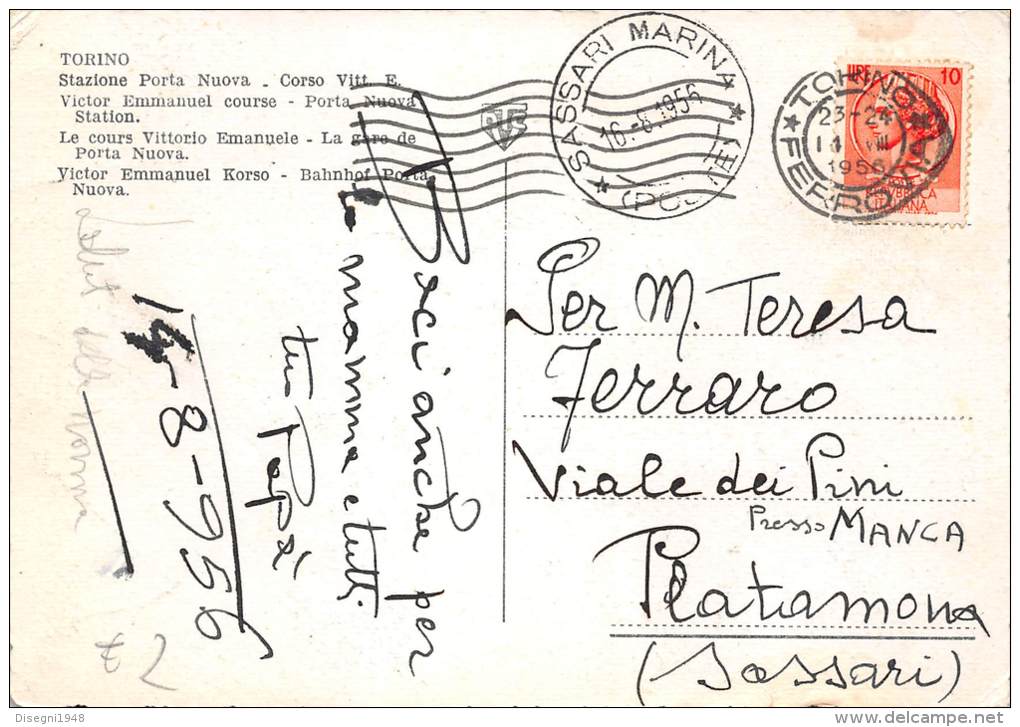 TORINO
Stazione Porta Nuova - Corso Vitt. E.
Victor Emmanuel course - Porta Nuova
Station.
Le cours Vittorio Emanuele - La gare de
Porta Nuova.
Victor Emmanuel Korso - Bahnhof Porta
Nuova.
SASSARI MARINA
16.-8.1956
TORINO
23-24
VIII
1956
FERROVIA
LIRE 10
REPVBBLICA
ITALIANA
14-8-956
Baci anche per
la mamma e tutti
tuo Papà
Per M. Teresa
Ferraro
Viale dei Pini
Presso MANCA
Platamona
(Sassari)
Disegni1948
delcampe.net